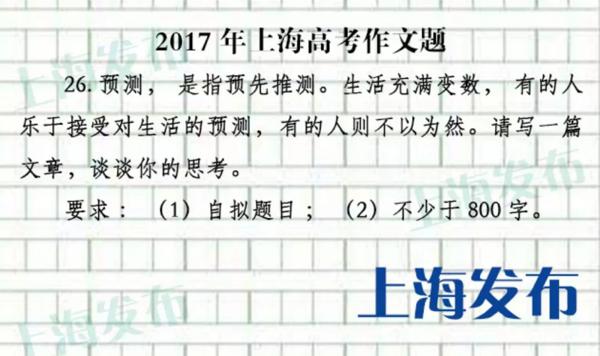 2017年上海高考作文题
26.预测， 是指预先推测。生活充满变数， 有的人
乐于接受对生活的预测，有的人则不以为然。请写一篇
文章，谈谈你的思考。
要求： （1）自拟题目； （2）不少于800字。
上海发布
上海发布
上海发布
上海发布